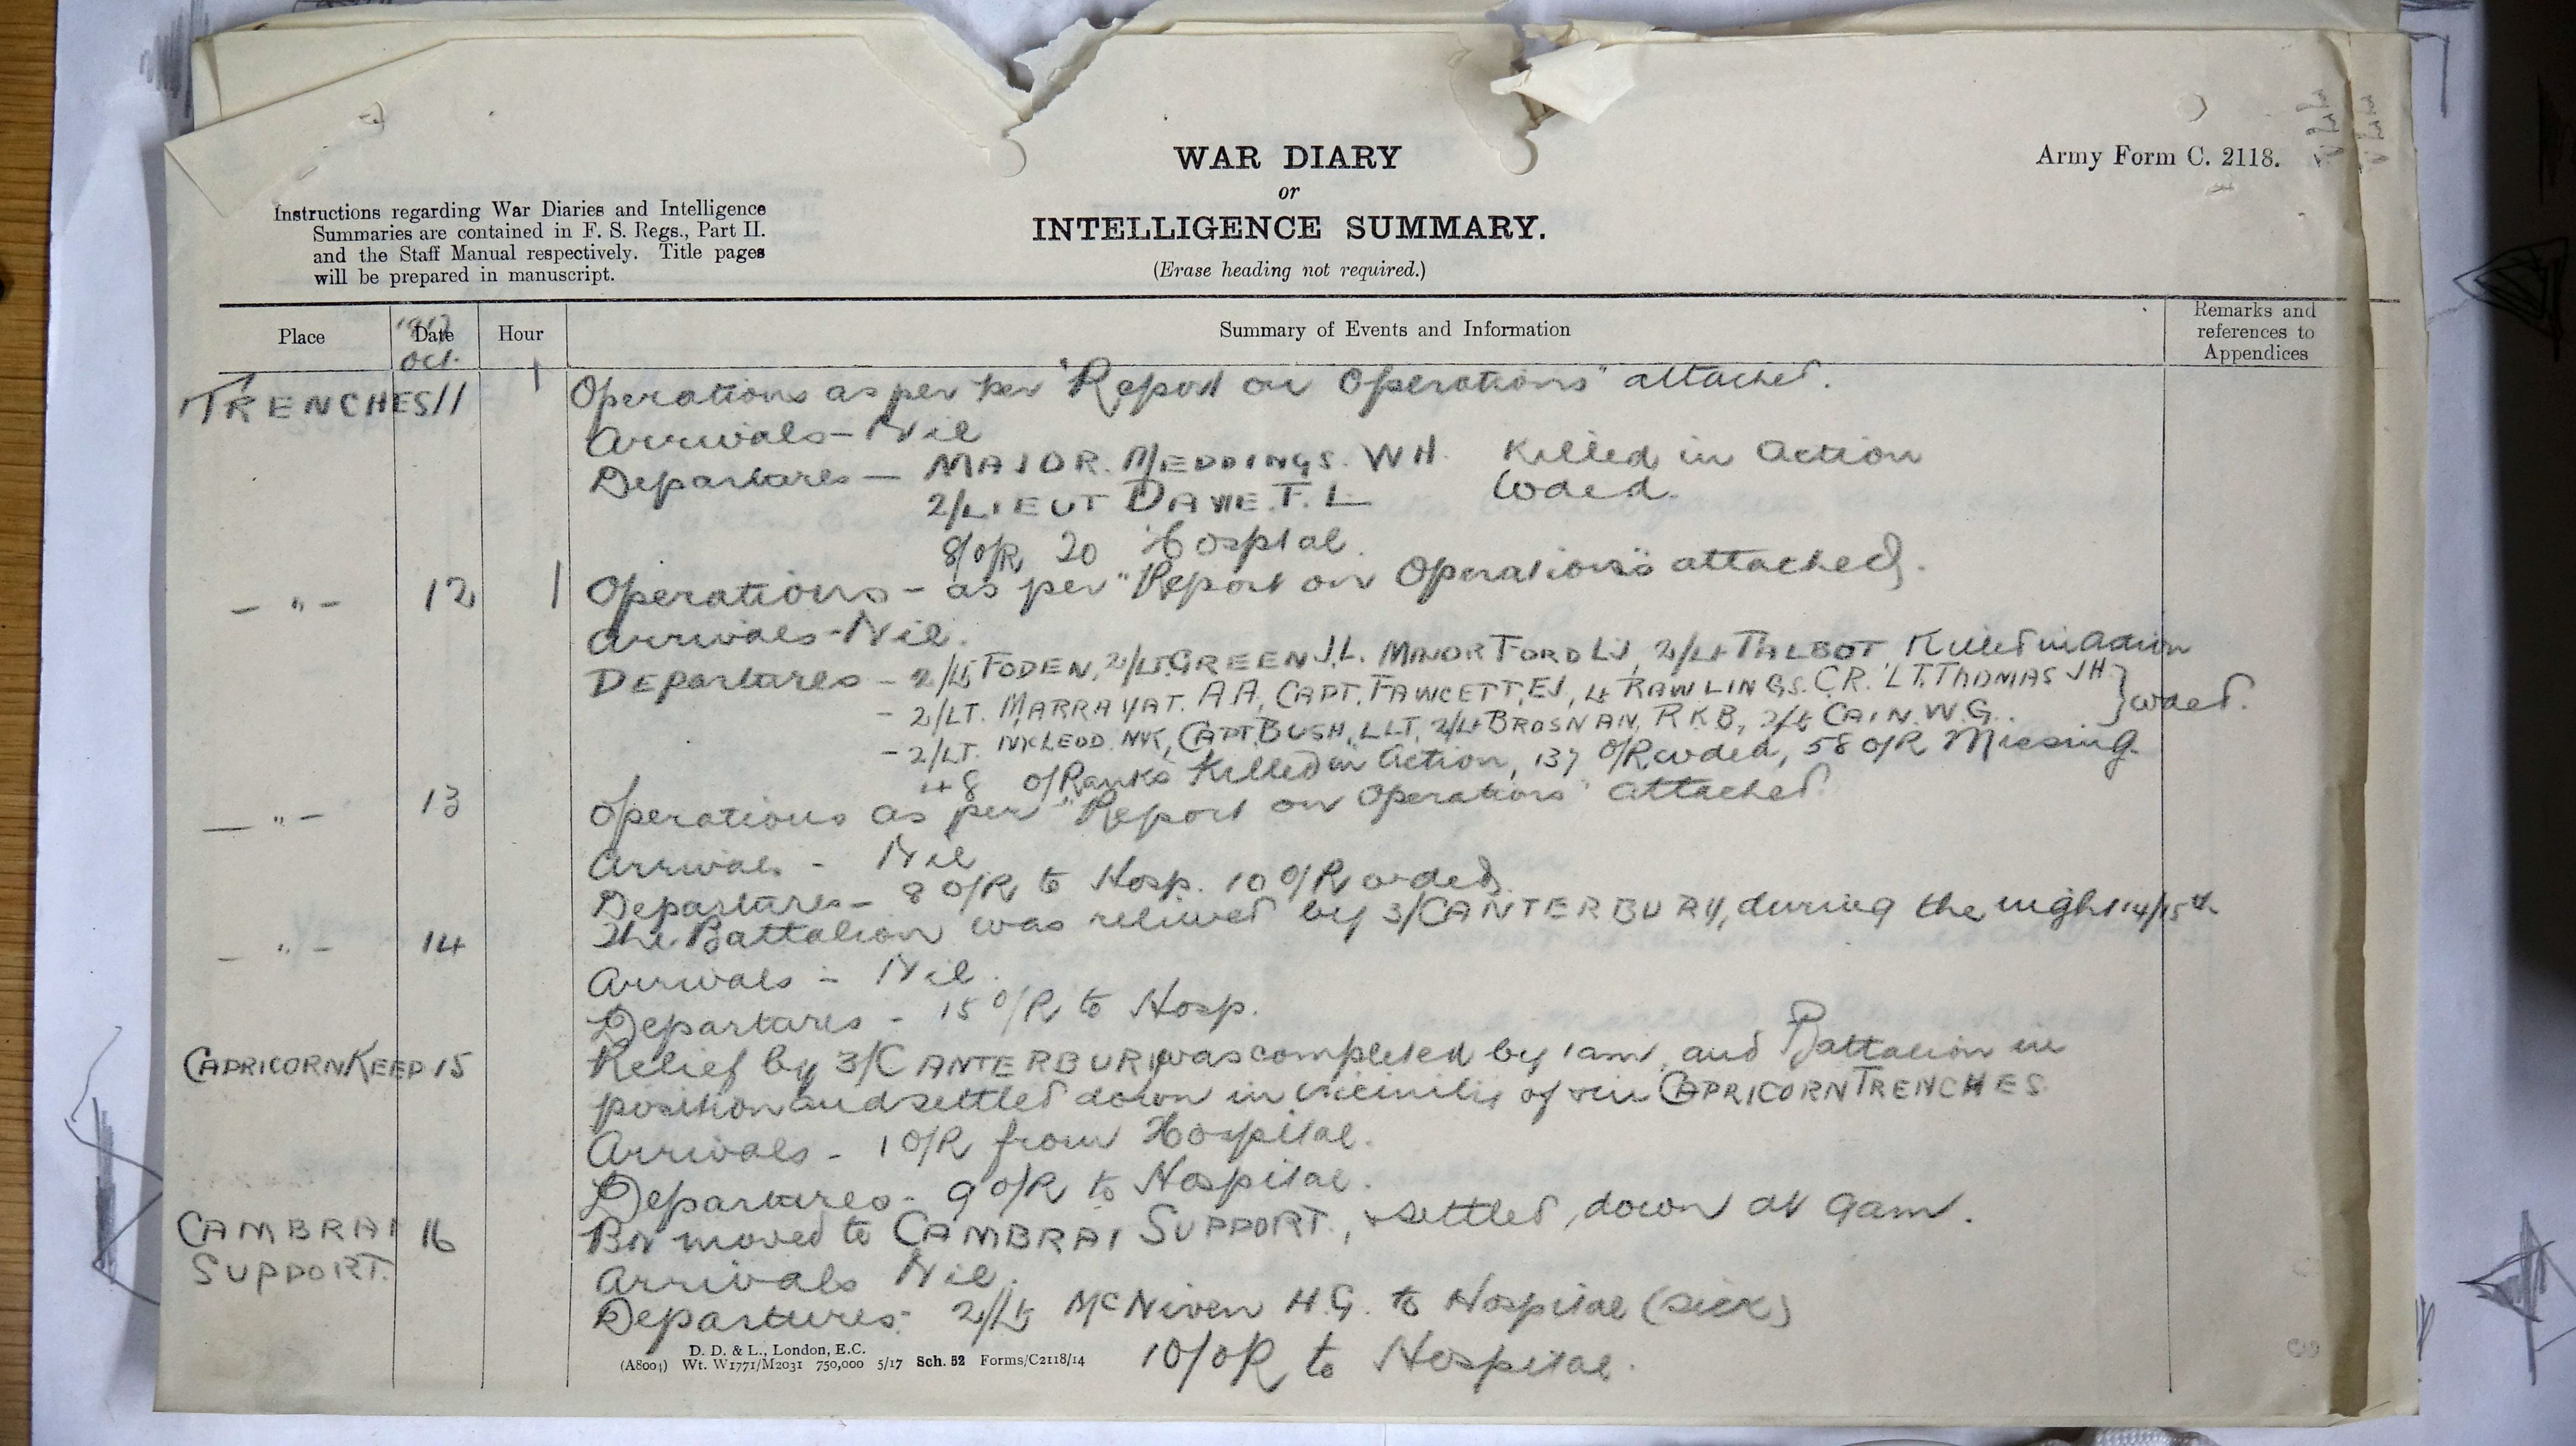 WAR DIARY
or
INTELLIGENCE SUMMARY.
(Erase heading not required.)
Army Form C. 2118.
Instructions regarding War Diaries and Intelligence
Summaries are contained in F. S. Regs., Part II.
and the Staff Manual respectively. Title pages
will be prepared in manuscript.
Place
1917
Date
Oct.
Hour
Summary of Events and Information
Remarks and
references to
Appendices
TRENCHES 11 Operations as per "Report on Operations" attached.
Arrivals - Nil
Departures - MAJOR. MEDDINGS. WH. Killed in Action
2/LIEUT DAVIE. F. L Wded.
8 O/R 20 Hosptal.
- " - 12 Operations - as per "Report on Operations" attached.
Arrivals - Nil.
Departures - 2/Lt FODEN, 2/LT. GREEN J.L. MAJOR FORD LJ, 2/Lt TALBOT Killed in Action
- 2/LT. MARRAYAT. A A, CAPT. FAWCETT, EJ, Lt RAWLINGS. C.R. LT. THOMAS JH } wded.
- 2/LT. McLEOD. NK, CAPT. BUSH, LLT, 2/Lt BROSNAN, R K B, 2/Lt CAIN. W.G.
48 O/Ranks Killed in Action, 137 O/R wded, 58 O/R Missing.
- " - 13 Operations as per "Report on Operations" attached.
Arrivals - Nil
Departures - 8 O/R to Hosp. 10 O/R wded.
- " - 14 The Battalion was relieved by 3/CANTERBURY, during the night 14/15th
Arrivals - Nil.
Departures - 15 O/R to Hosp.
CAPRICORN KEEP 15 Relief by 3/CANTERBURY was completed by 1am, and Battalion in
position and settled down in vicinity of CAPRICORN TRENCHES
Arrivals - 1 O/R from Hospital.
Departures - 9 O/R to Hospital.
CAMBRAI 16 Bn moved to CAMBRAI SUPPORT, & settled, down at 9am.
SUPPORT.
Arrivals Nil.
Departures - 2/Lt McNiven H.G. to Hospital (sick)
10/OR to Hospital.
D. D. & L., London, E.C.
(A8004) Wt. W1771/M2031 750,000 5/17 Sch. 52 Forms/C2118/14